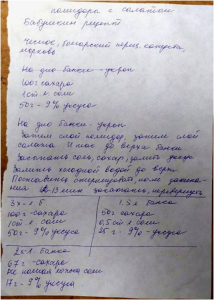 помидора с салатом
Бабушкин рецепт
Чеснок, болгарский перец, петрушка,
морковь
На дно банки - укроп
100г сахара
1ст л. соли
50г - 9% уксуса
На дно банки - укроп
Затем слой помидор, затем слой
салата и так до верха банки
Засыпать соль, сахар, залить уксус
Залить холодной водой до верха
Поставить стерилизовать, после закипания
15 мин закатать, перевернуть
3х л. б.
100г - сахара
1ст л. соли
50г - 9% уксуса
1,5 л банка
50г сахара
0,5 ст л. соли
25г - 9% уксуса
2х л. банка
67г - сахара
не полная ложка соли
17г - 9% уксуса